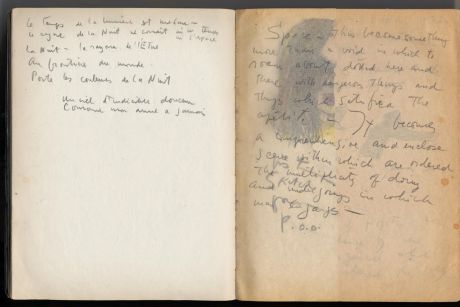 Le Temps de la lumière est mesure —
Le règne de la Nuit ne connait ni le temps
ni l'espace
La Nuit = le royaume de l'Être
du monde
Porte les couleurs de la Nuit
Un ciel d'indicible douceur
Couronne mon âme a jamais
Space — thus becomes something
more than a void in which to
roam about, dotted here and
there with dangerous things and
things which satisfied the
appetite — It becomes
a comprehensive and enclosed
scene within which are ordered
the multiplicity of doing
and undergoings in which
man engages —